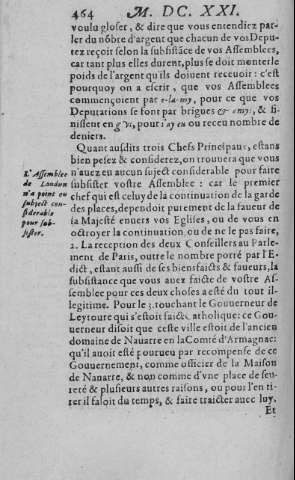 464 M. DC. XXI.
voulu gloser, & dire que vous entendiez par-
ler du nõbre d'argent que chacun de vos Depu-
tez reçoit selon la subsistãce de vos Assemblees,
car tant plus elles durent, plus se doit monter le
poids de l'argent qu'ils doiuent receuoir : c'est
pourquoy on a escrit, que vos Assemblees
commençoient par e-la-my, pour ce que vos
Deputations se font par brigues & amys, & fi-
nissent en g vt, pour i'ay eu ou receu nombre de
deniers.
Quant ausdits trois Chefs Principaux, estans
bien pesez & considerez, on trouuera que vous
n'auez eu aucun suject considerable pour faire
subsister vostre Assemblee : car le premier
chef qui est celuy de la continuation de la garde
des places, dependoit purement de la faueur de
sa Majesté enuers vos Eglises, ou de vous en
octroyer la continuation, ou de ne le pas faire,
2. La reception des deux Conseillers au Parle-
ment de Paris, outre le nombre porté par l'E-
dict, estant aussi de ses biensfaicts & faueurs, la
subsistance que vous auez faicte de vostre As-
semblee pour ces deux choses a esté du tout il-
legitime. Pour le 3. touchant le Gouuerneur de
Leytoure qui s'estoit faict Catholique : ce Gou-
uerneur disoit que ceste ville estoit de l'ancien
domaine de Nauarre en la Comté d'Armagnac:
qu'il auoit esté pourueu par recompense de ce
Gouuernement, comme officier de la Maison
de Nauarre, & non comme d'vne place de seu-
reté & plusieurs autres raisons, ou pour l'en ti-
rer il faloit du temps, & faire traicter auec luy.
Et
L'Assemblee
de Loudun
n'a point eu
subject con-
siderable
pour sub-
sister.